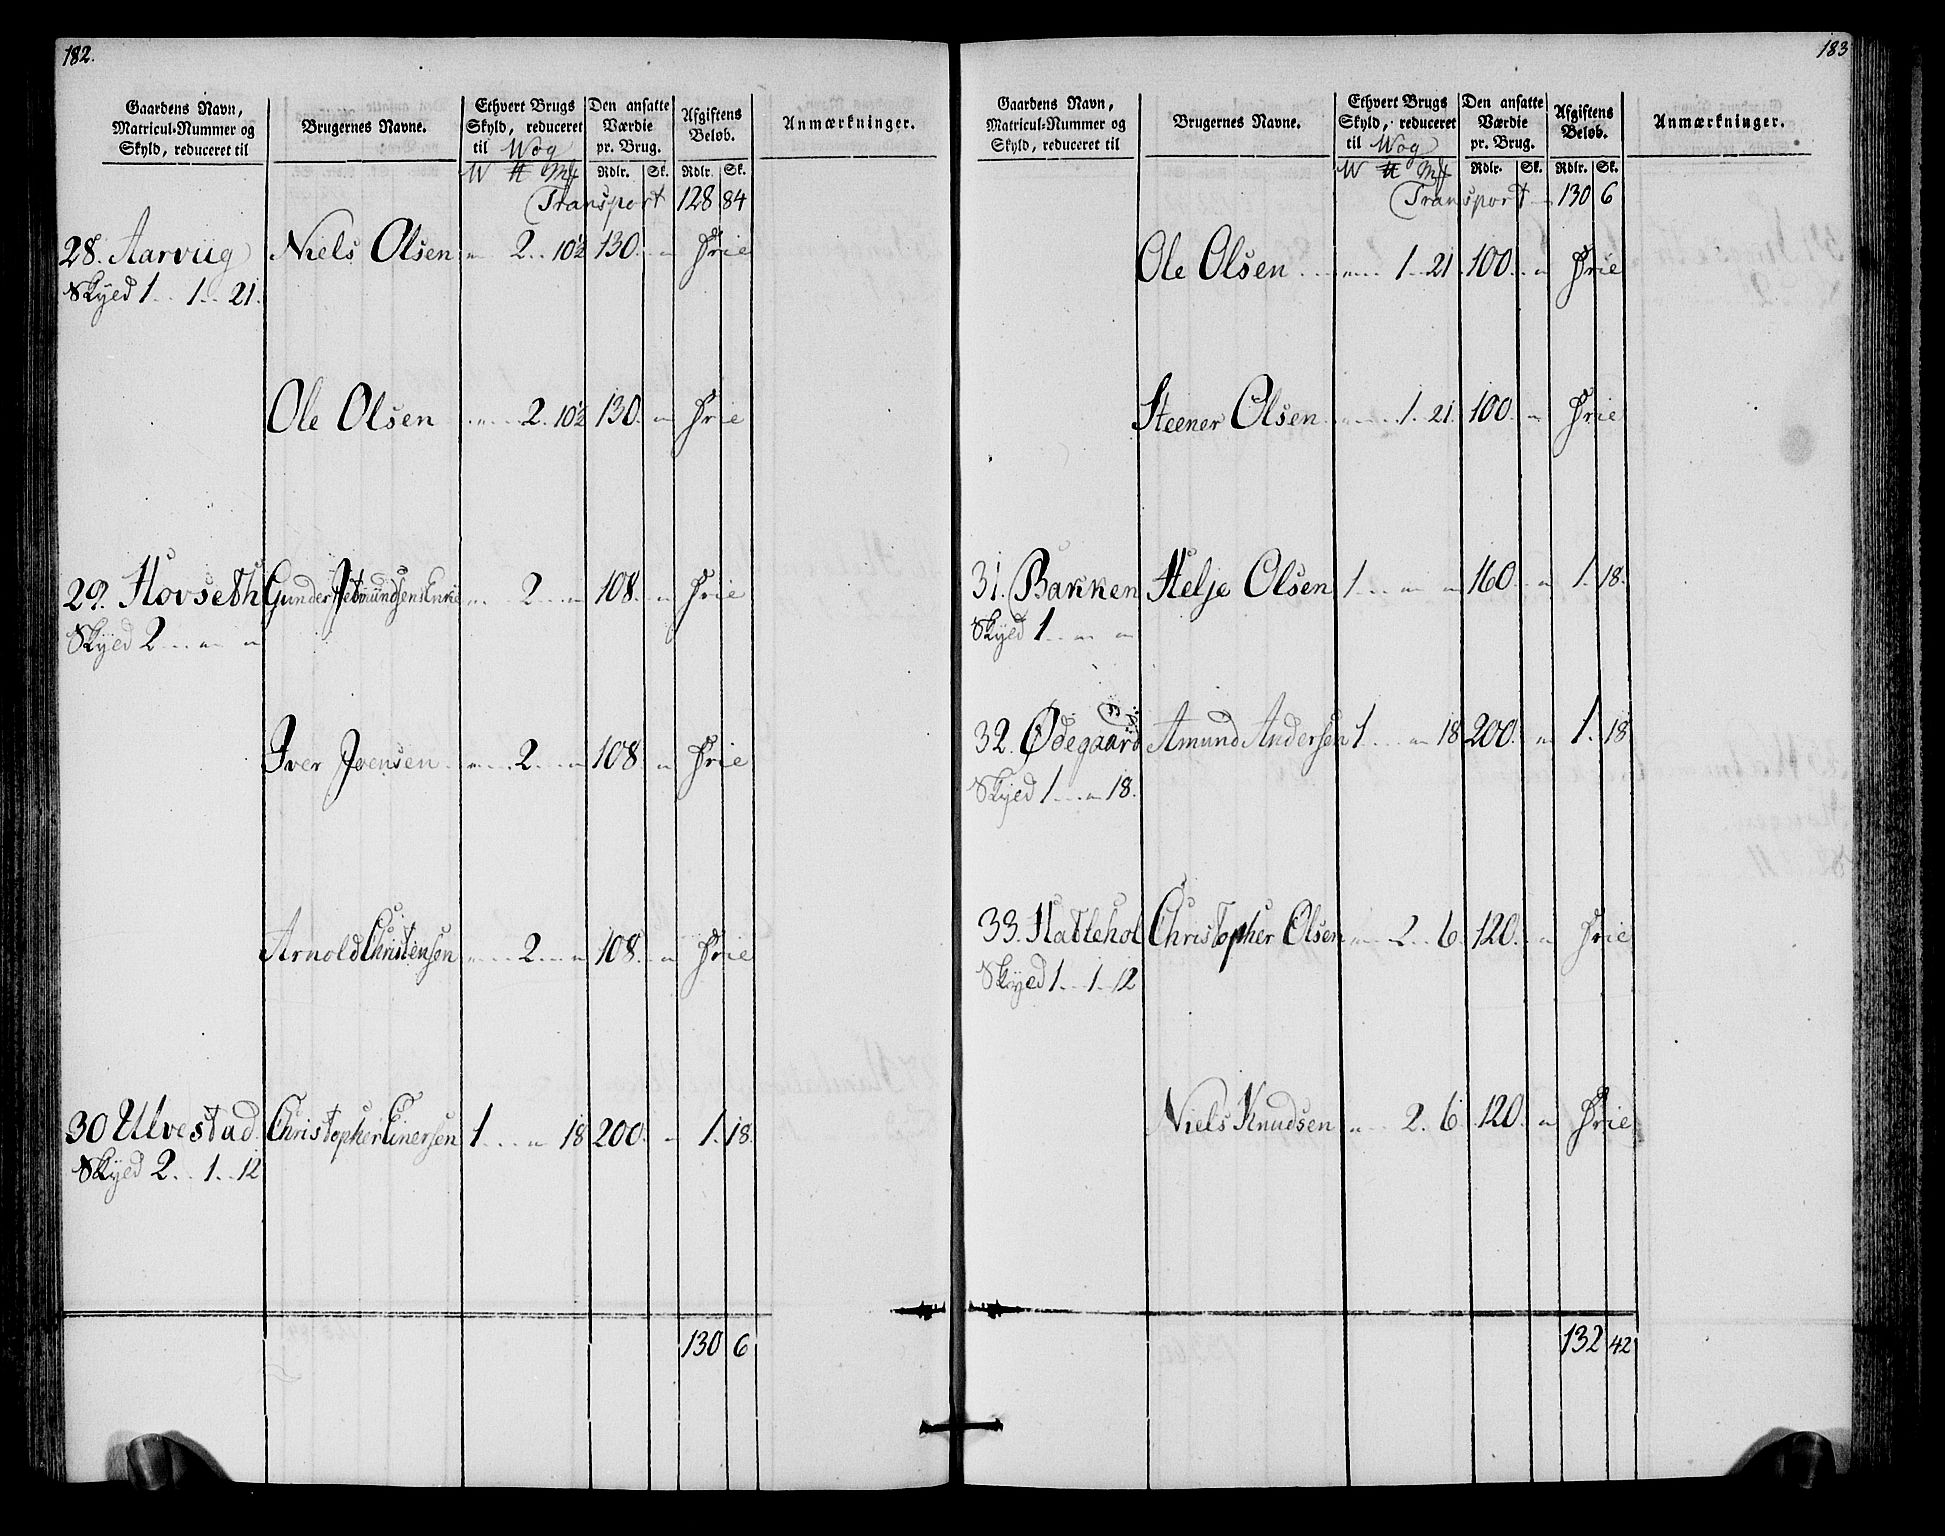 182.
Gaardens Navn, Matricul-Nummer og Skyld, reduceret til
Brugernes Navne.
Ethvert Brugs Skyld, reduceret til Wog
Den ansatte Værdie pr. Brug.
Afgiftens Beløb.
Anmærkninger.
W ℔ Mk Rdlr. Sk. Rdlr. Sk.
Transport 128 84
28. Aarviig Niels Olsen " 2 .. 10½ 130. " Frie
Skyed 1 .. 1 .. 21.
Ole Olsen " 2. 10½ 130. " Frie
29. Hovseth Gunder Enke " 2 " 108. " Frie
Skyed 2 .. " "
Iver Joensen " 2 " 108. " Frie
Arnold Christensen " 2 " 108. " Frie
30 Ulvestad Christopher Einersen 1 " 18 200. " 1. 18.
Skyed 2 .. 1 .. 12
130 6
183
Gaardens Navn, Matricul-Nummer og Skyld, reduceret til
Brugernes Navne.
Ethvert Brugs Skyld, reduceret til Wog
Den ansatte Værdie pr. Brug.
Afgiftens Beløb.
Anmærkninger.
W ℔ Mk Rdlr. Sk. Rdlr. Sk.
Transport 130 6
Ole Olsen " 1 .. 21 100. " Frie
Steener Olsen " 1. 21. 100. " Frie
31. Bakken Helje Olsen 1 " " 160. " 1. 18.
Skyed 1 .. " "
32. Ødegaard Amund Andersen 1 " 18 200. " 1. 18
Skyed 1 .. " 18.
33. Hatlehol Christopher Olsen " 2 .. 6. 120. " Frie
Skyed 1 .. 1 .. 12
Niels Knudsen " 2. 6 120. " Frie
132 42